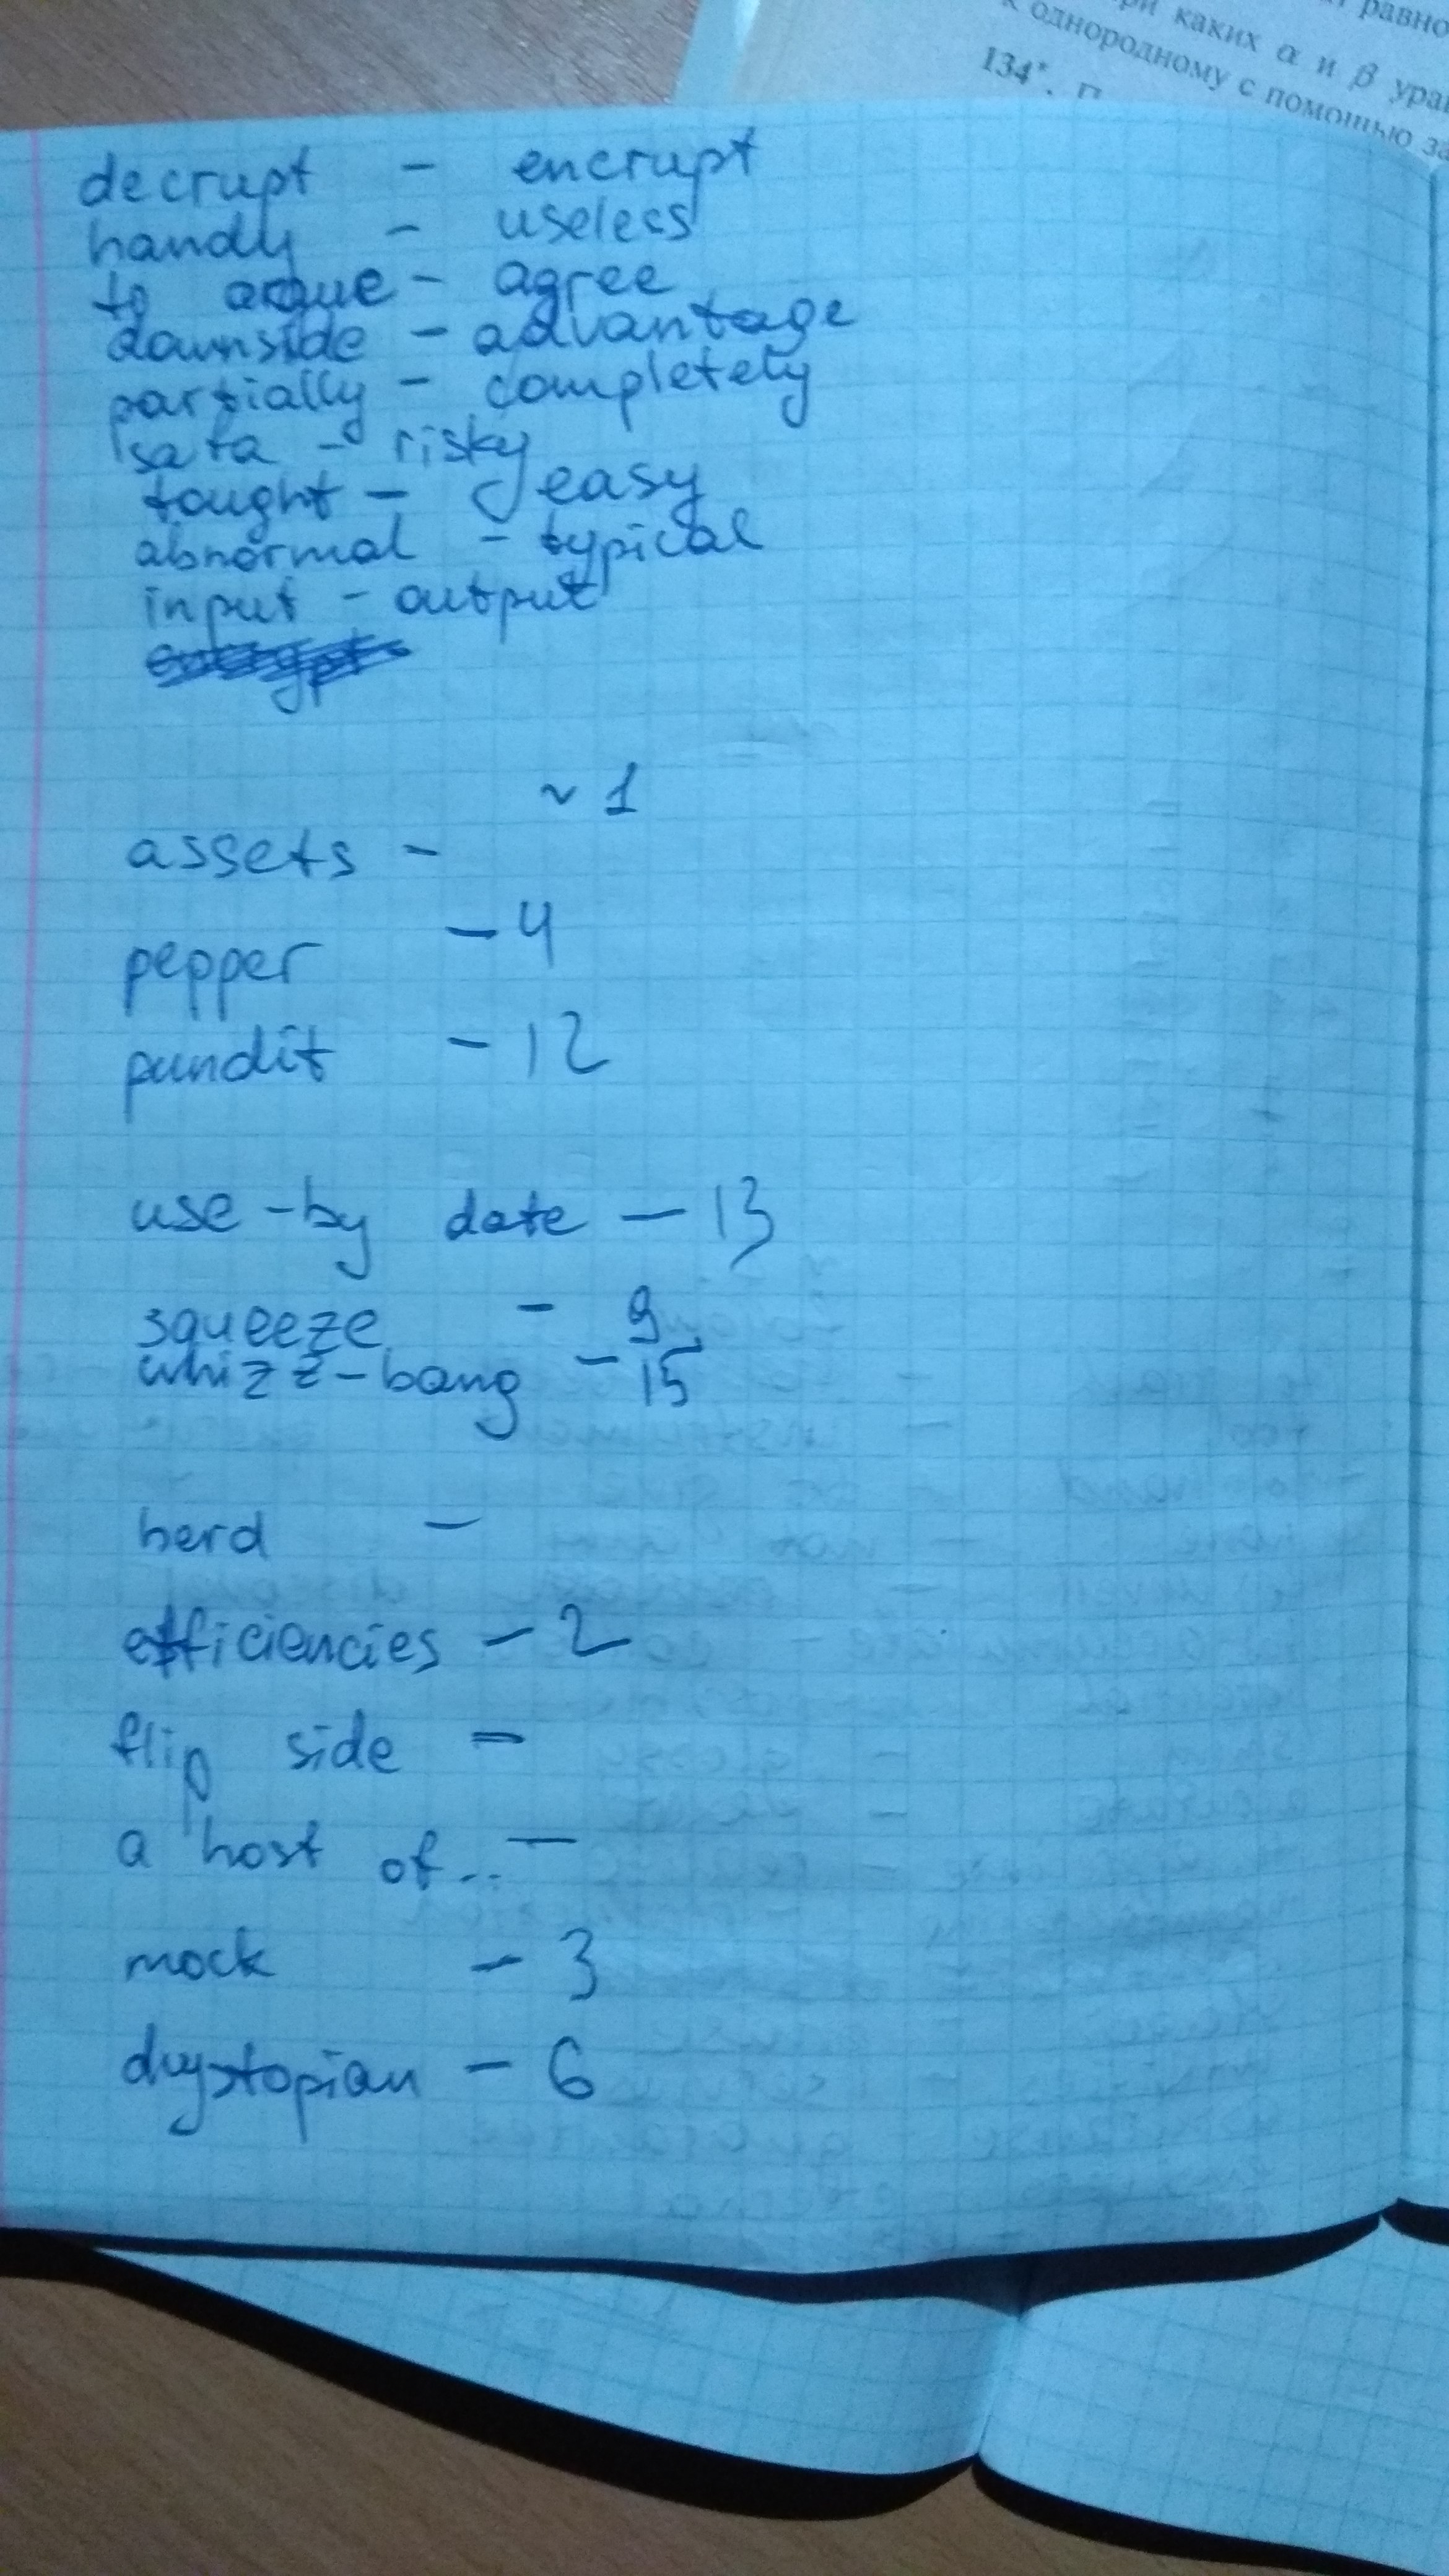 равно
ри каких α и β ура
к однородному с помощью за
134*. П
decrupt - encrupt
handly - useless
to argue - agree
downside - advantage
partially - completely
safa - risky
tought - easy
abnormal - typical
input - output
~ 1
assets -
pepper - 4
pundit - 12
use-by date - 13
squeeze - 9
whizz-bang - 15
herd -
efficiencies - 2
flip side -
a host of... -
mock - 3
dystopian - 6